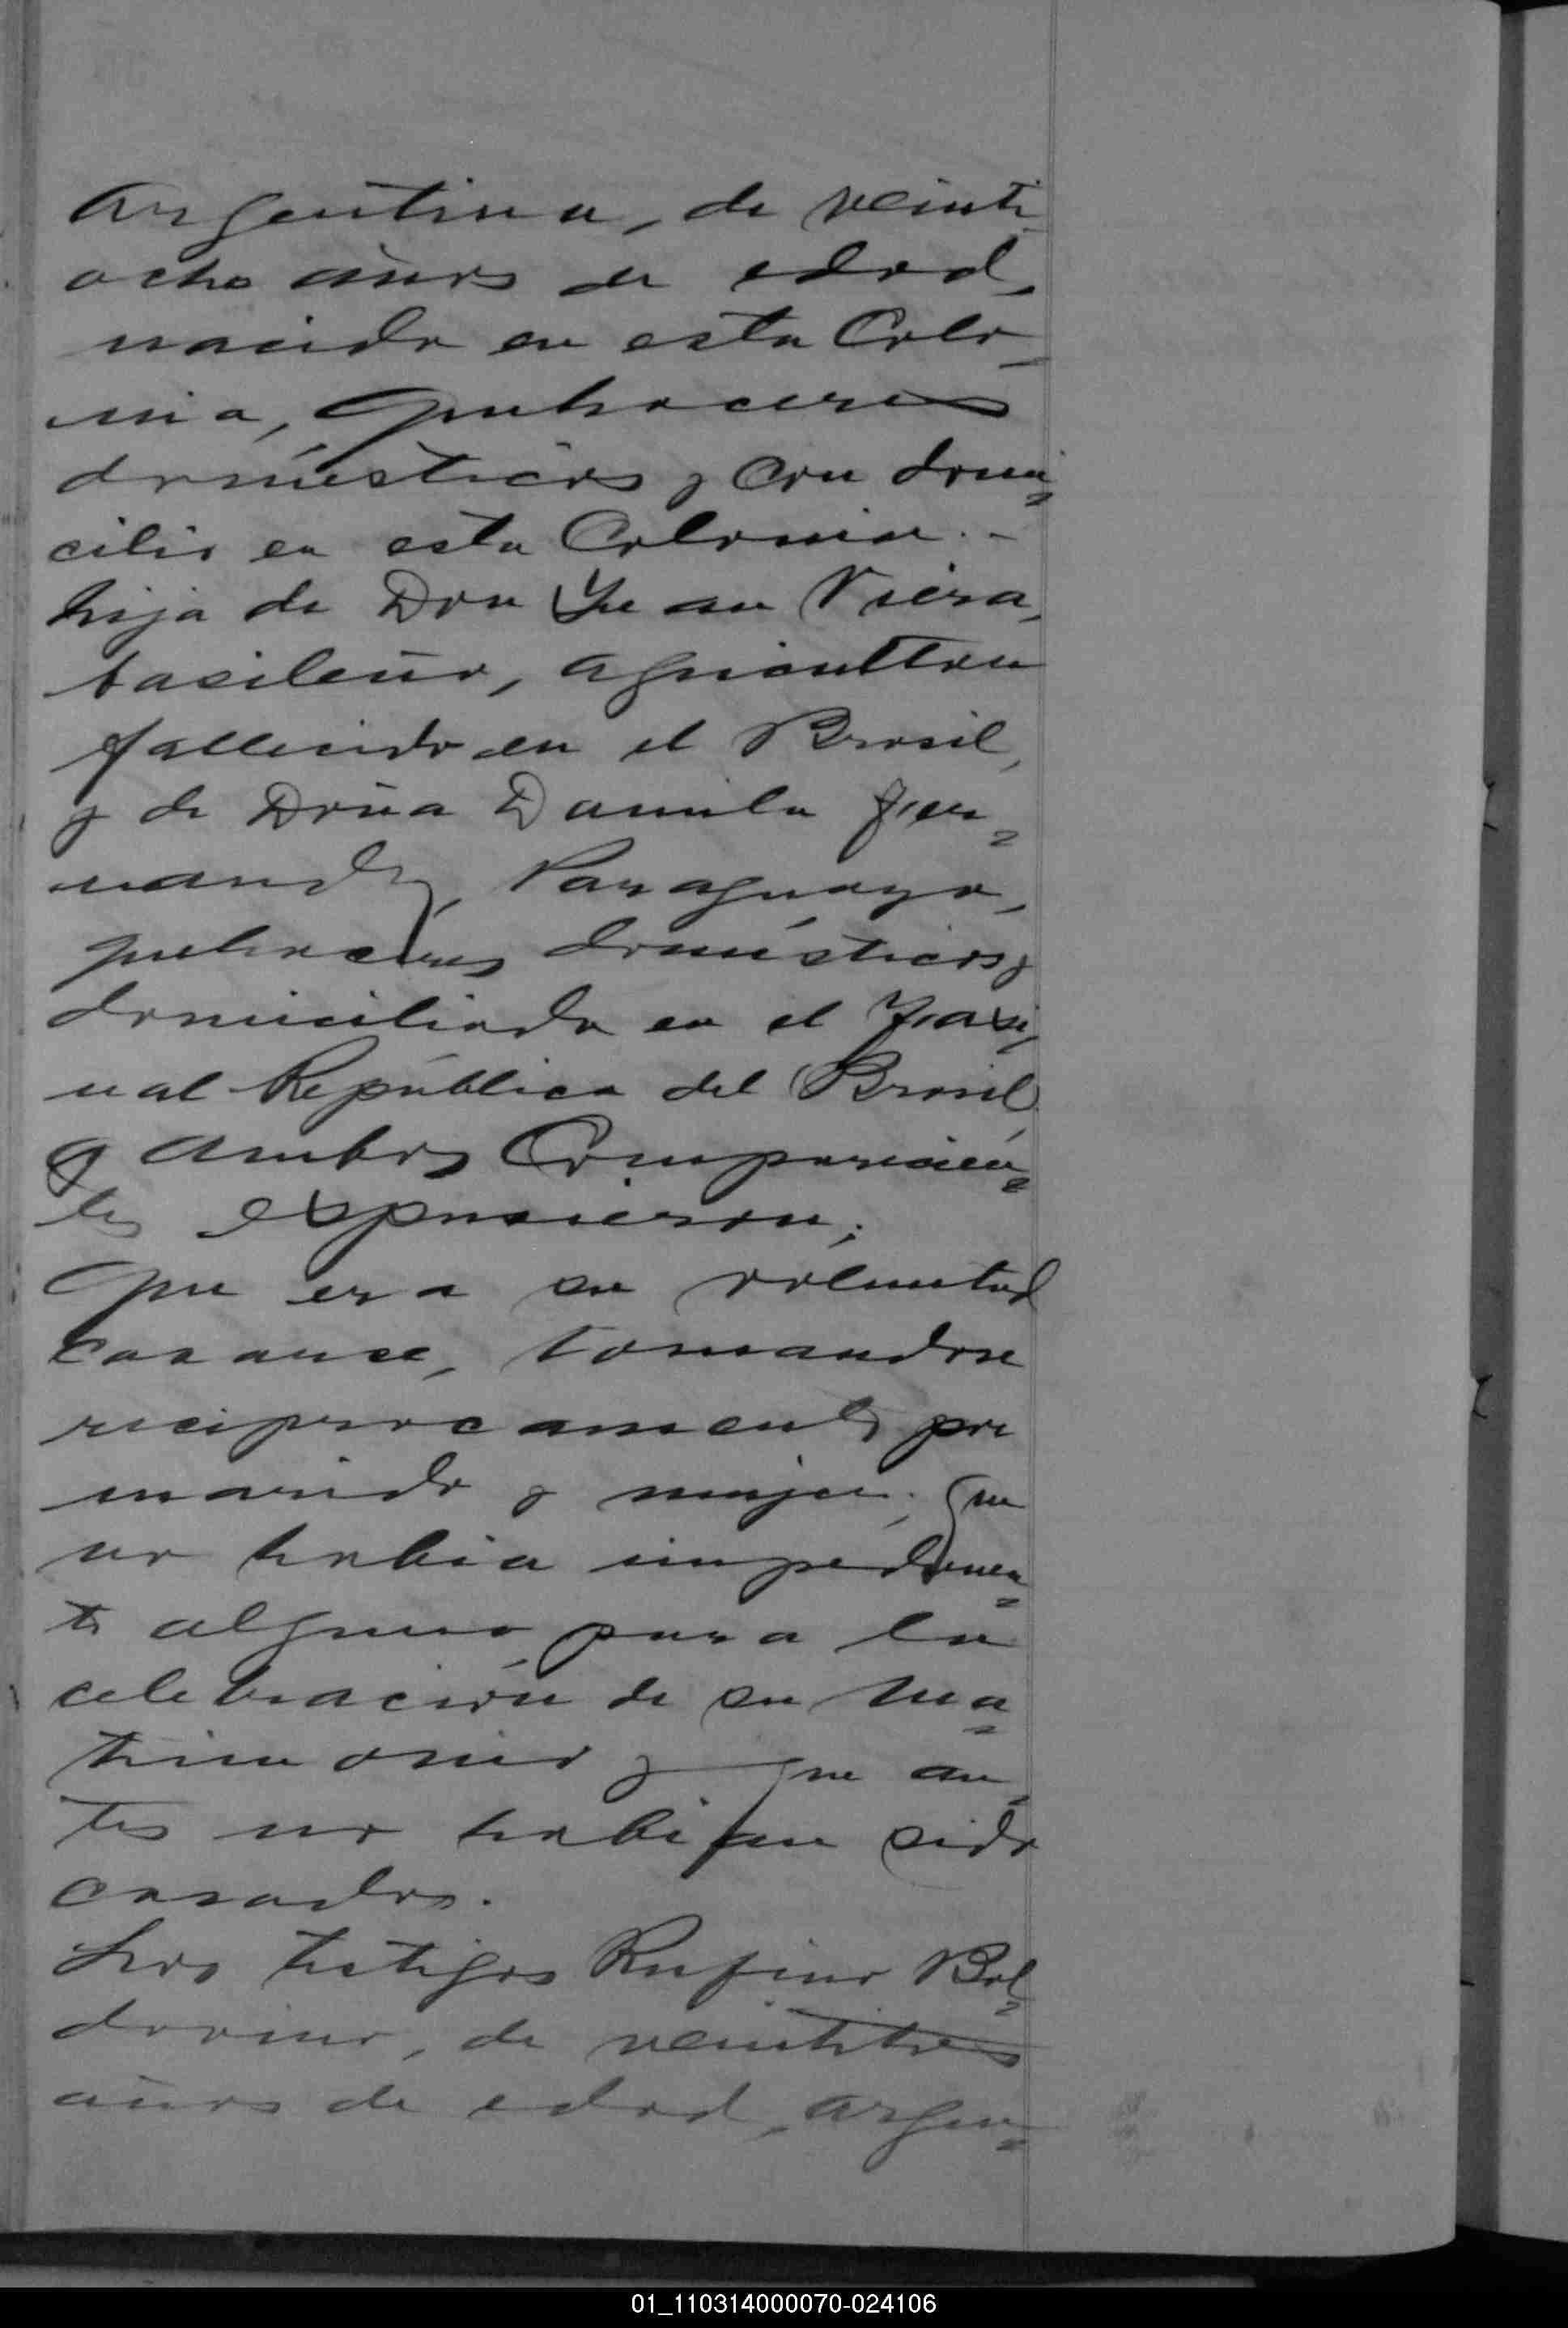 Argentina, de veinti
ocho años de edad,
nacida en esta Colo-
nia, Quehaceres
domésticos y con domi-
cilio en esta Colonia.-
hija de Don Juan Viera,
basileño, agricultor
fallecido en el Brasil,
y de Doña Damila Fer-
nandez, Paraguaya,
quehaceres domésticos y
domiciliada en el
República del Brasil
y ambos Comparecien-
tes expusieron;
Que era su voluntad
casarse, tomandose
reciprocamente por
marido y mujer; que
no habia impedimen-
to alguno para la
celebración de su Ma-
trimonio y que an-
tes no habian sido
casados.
Los testigos Rufino Bal-
dovino, de veintitres
años de edad, argen-
01_110314000070-024106